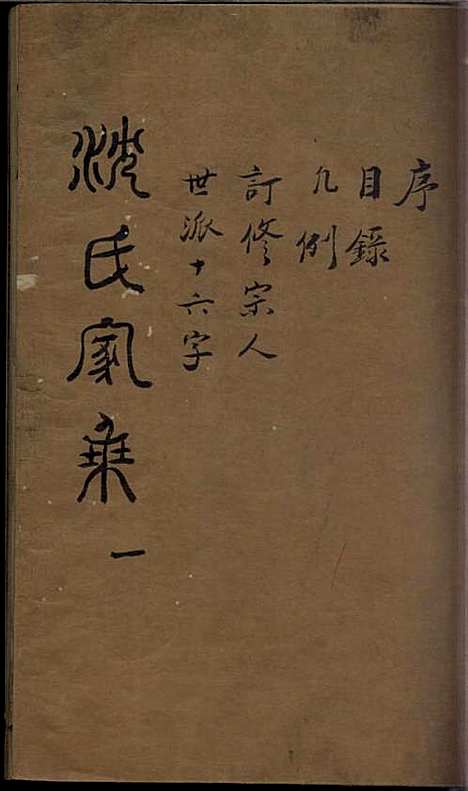 序
目錄
凡例
訂修宗人
世派十六字
沈氏家乘 一